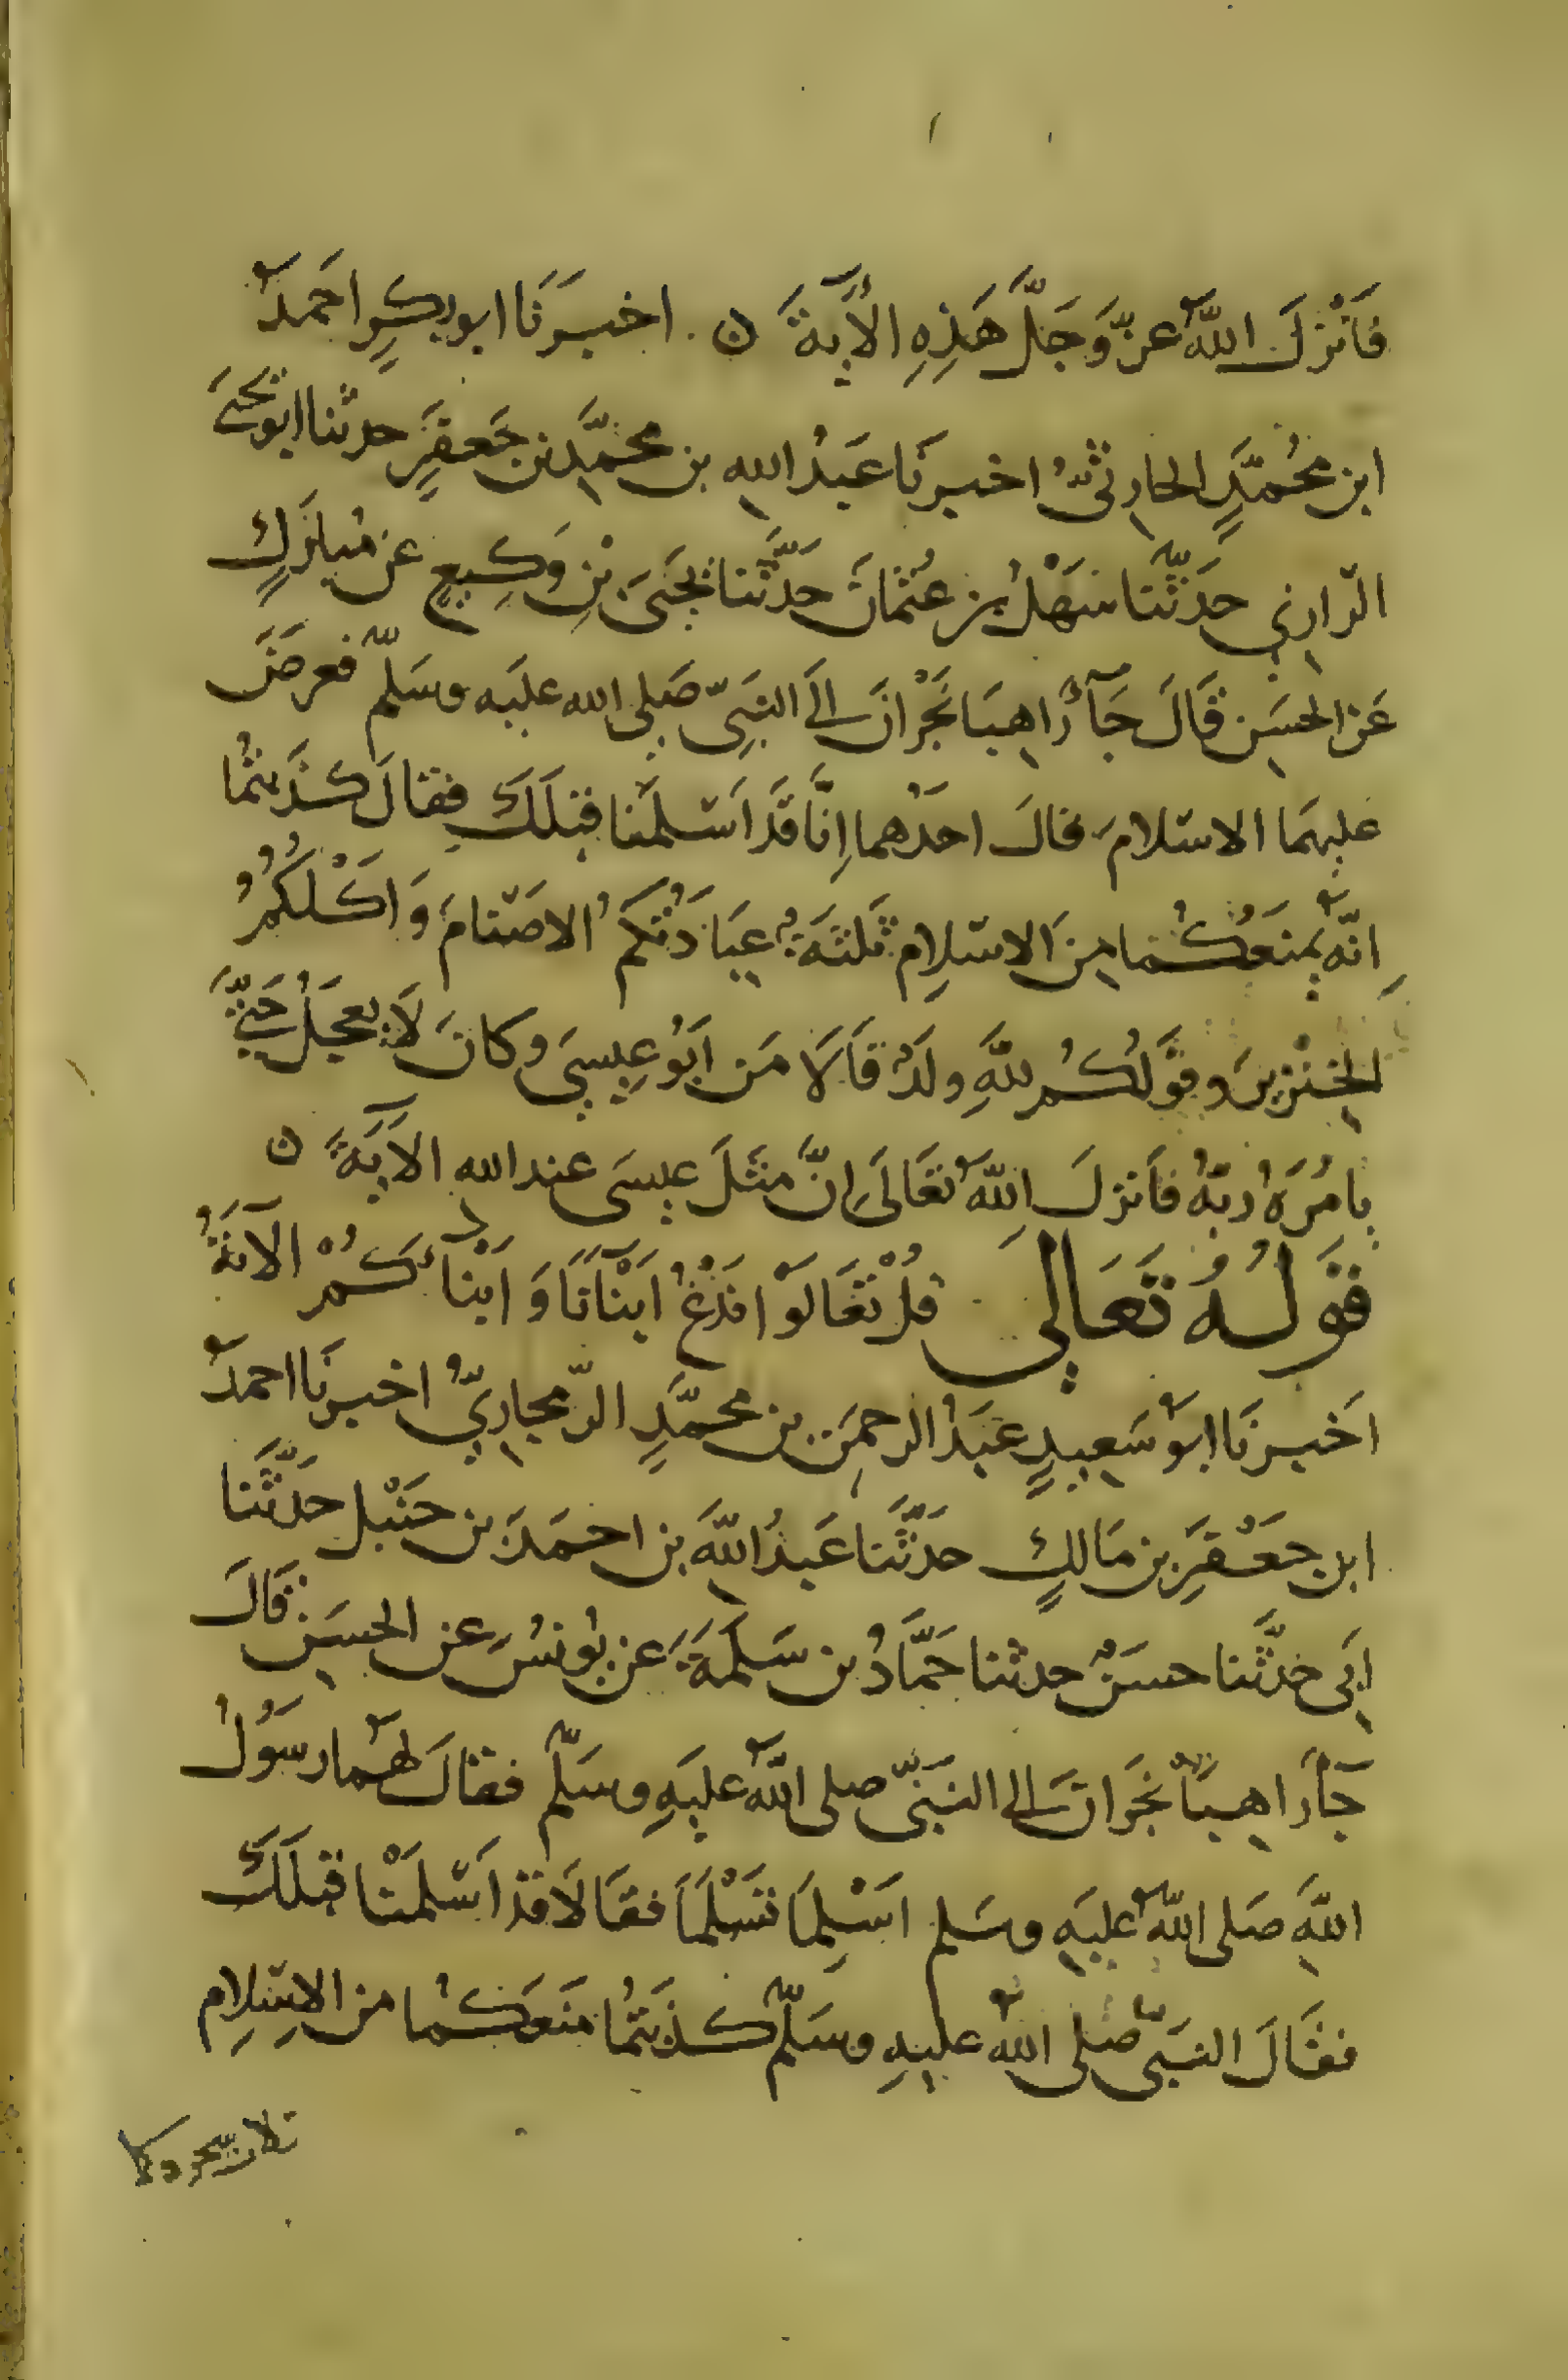 فَأَنْزَلَ اللهُ عزَّ وَجَلَّ هَذِهِ الْآيةَ ن اخبرَنَا ابو بكرٍ احمدُ
ابن محُمَّدٍ الحارِثىُّ اخبرنَا عَبدُ اللهِ بن محمَّدِ بن جَعفَرٍ حدثنا ابو يَحيَى
الرّازِي حَدَّثَنا سَهْلُ بن عُثمَانَ حَدَّثَنا يحَيىَ بْنِ وَكِيعٍ عَن مُبارَكٍ
عَن الحسَنِ قَالَ جَآ رَاهِبَا نَجْرَانَ الَى النبَىِّ صَلى الله علَيه وسَلَّم فعرضَ
عليهِمَا الاسلامَ فقالَ احدُهما اِنَّا قَد اَسْلمْنا قبْلَكَ فقالَ كذَبتُما
اِنّه يمنعُكُما مِنَ الاسلامِ ثلثةٌ عبَادَتُكُم الاصْنامَ وَاَكْلُكُمُ
الخِنْزِيرَ وقَولُكُم للهِ ولَدٌ قَالَا مَن اَبُو عِيسىَ وكانَ لَا يعجَلُ حَتّى
يامُرَهُ ربّهُ فاَنزلَ اللهُ تعَالَى اِنَّ مثَلَ عيسَى عند الله الآيَةَ ن
قَولُهُ تَعَالى قُلْ تعَالَوْا نَدْعُ ابْنآنَا وَابْنآئَكُمْ الآيَةَ
اَخبرنَا ابو سَعِيدٍ عَبدُ الرحمَنِ بن محمَّدٍ الرّمجارِيُّ اخبرنَا احمدُ
ابن جَعْفَرِ بن مَالكٍ حَدَّثَنا عَبدُ اللهِ بن احمَدَ بن حَنْبل حَدَّثَنا
اَبِى حَدَّثَنا حسَنٌ حدثنا حَمَّادُ بن سَلَمَةَ عن يُونسَ عن الحسَنِ قَالَ
جَآ رَاهِبَا نَجرَانَ الى النبَىِّ صلى اللهُ عليَهِ وسَلَّم فقالَ لهُما رسَوُلُ
اللهِ صَلى اللهُ عليَهِ وسَلم اَسْلِمَا تَسْلَمَا فقَالَا قد اَسْلمْنا قبْلَكَ
فقَالَ النبَىُّ صَلى اللهُ عليهِ وسَلَّم كذَبتُما مَنعَكُما من الاِسْلاِم